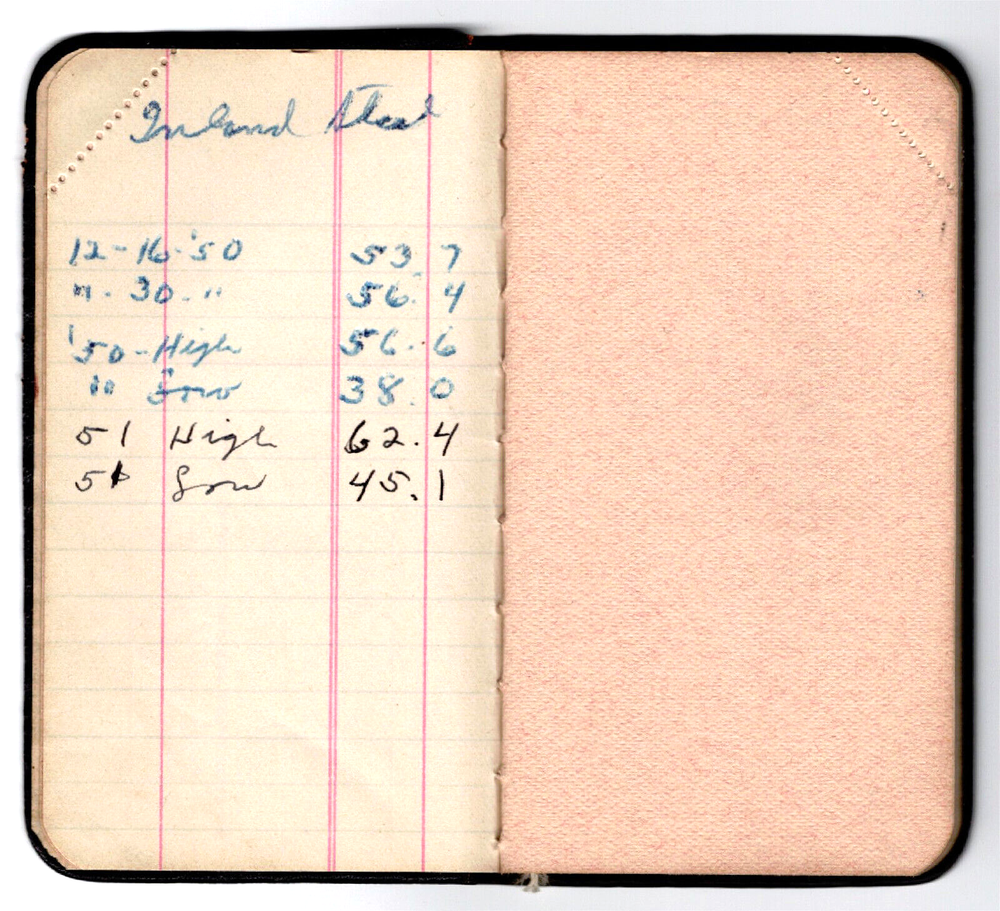 Inland Steel
12-16-'50 53.7
" - 30 - " 56.4
'50 - High 56.6
" Low 38.0
51 High 62.4
51 Low 45.1